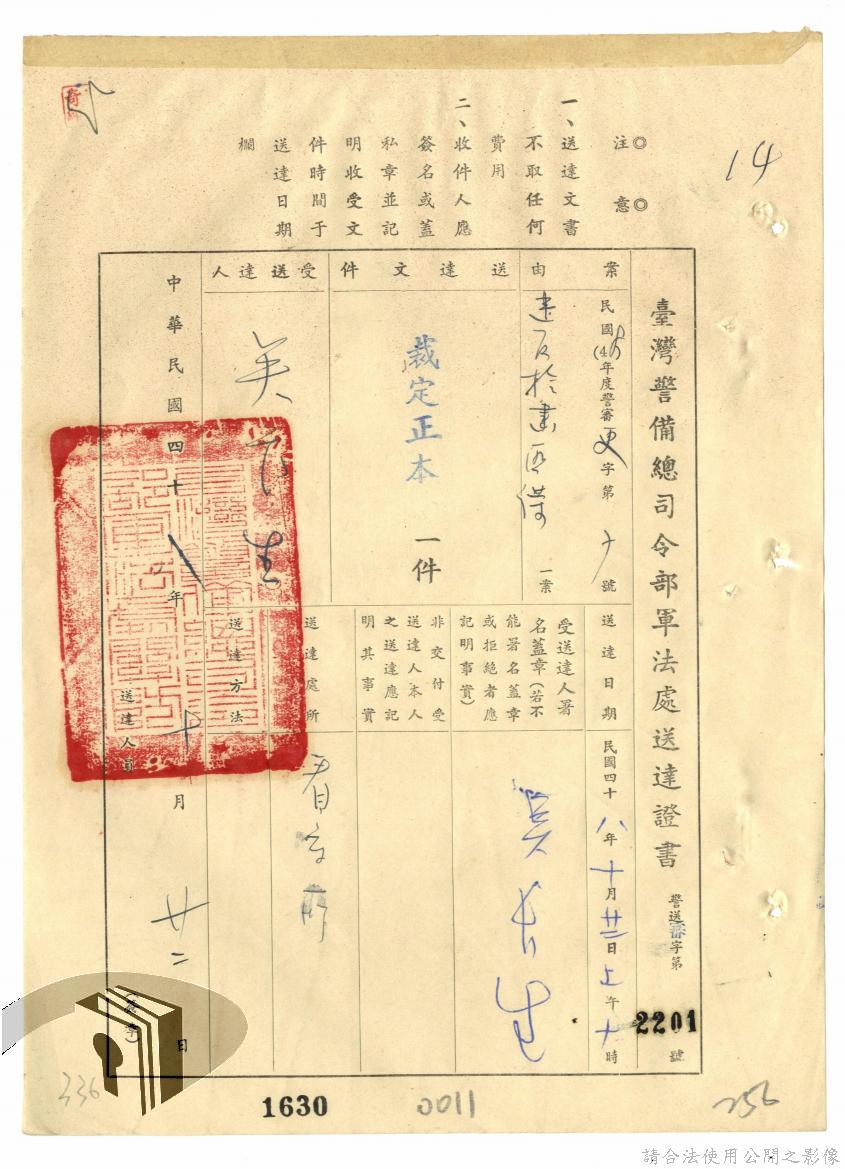 14
◎注意◎
一、送達文書
不取任何
費用
二、收件人應
簽名或蓋
私章並記
明收受文
件時間于
送達日期
欄
臺灣警備總司令部軍法處送達證書
警送審字第2201號
案由
民國(48)年度警審更字第十號
一案
送達文件
裁定正本 一件
受送達人
吳長生
送達日期
民國四十八年十月廿二日上午十時
受送達人署
名蓋章(若不
能署名蓋章
或拒絕者應
記明事實)
吳長生
非交付受
送達人本人
之送達應記
明其事實
送達處所
看守所
送達方法
中華民國四十八年十月廿二日
送達人員
336
1630
0011
256
請合法使用公開之影像